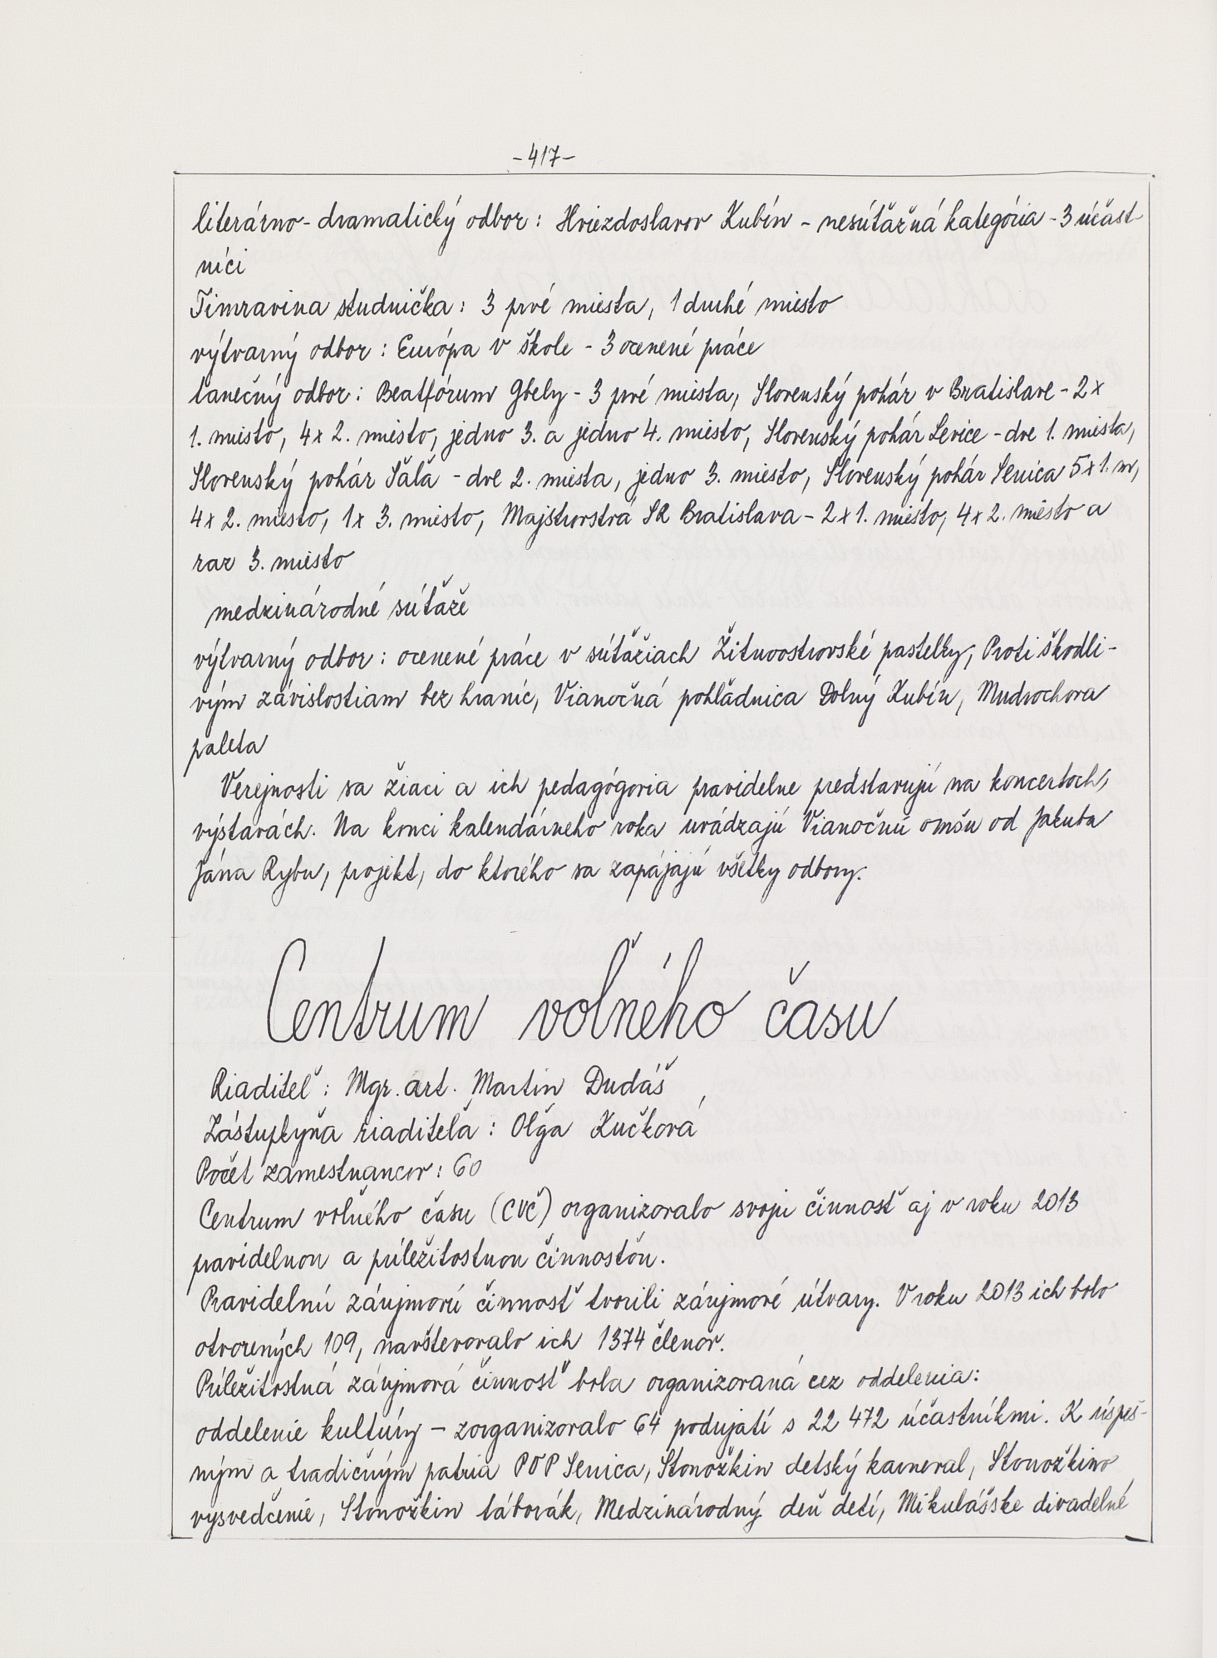 -417-
literárno-dramatický odbor: Hviezdoslavov Kubín - nesúťažná kategória - 3 účast-
níci
Timravina studnička: 3 prvé miesta, 1 druhé miesto
výtvarný odbor: Európa v škole - 3 ocenené práce
tanečný odbor: Beatfórum Gbely - 3 prvé miesta, Slovenský pohár v Bratislave - 2x
1. miesto, 4x 2. miesto, jedno 3. a jedno 4. miesto, Slovenský pohár Levice - dve 1. miesta,
Slovenský pohár Šaľa - dve 2. miesta, jedno 3. miesto, Slovenský pohár Senica 5x1.m,
4x 2. miesto, 1x 3. miesto, Majstrovstvá SR Bratislava - 2x1. miesto, 4x2. miesto a
raz 3. miesto
medzinárodné súťaže
výtvarný odbor: ocenené práce v súťažiach Žitnoostrovské pastelky, Proti škodli-
vým závislostiam bez hraníc, Vianočná pohľadnica Dolný Kubín, Mudrochova
paleta
Verejnosti sa žiaci a ich pedagógovia pravidelne predstavujú na koncertoch,
výstavách. Na konci kalendárneho roka uvádzajú Vianočnú omšu od Jakuba
Jána Rybu, projekt, do ktorého sa zapájajú všetky odbory.
Centrum voľného času
Riaditeľ: Mgr. art. Martin Dudáš
Zástupkyňa riaditeľa: Oľga Kučková
Počet zamestnancov: 60
Centrum voľného času (CVČ) organizovalo svoju činnosť aj v roku 2013
pravidelnou a príležitostnou činnosťou.
Pravidelnú záujmovú činnosť tvorili záujmové útvary. V roku 2013 ich bolo
otvorených 109, navštevovalo ich 1374 členov.
Príležitostná záujmová činnosť bola organizovaná cez oddelenia:
oddelenie kultúry - zorganizovalo 64 podujatí s 22 472 účastníkmi. K úspeš-
ným a tradičným patria POP Senica, Stonožkin detský karneval, Stonožkino
vysvedčenie, Stonožkin táborák, Medzinárodný deň detí, Mikulášske divadelné